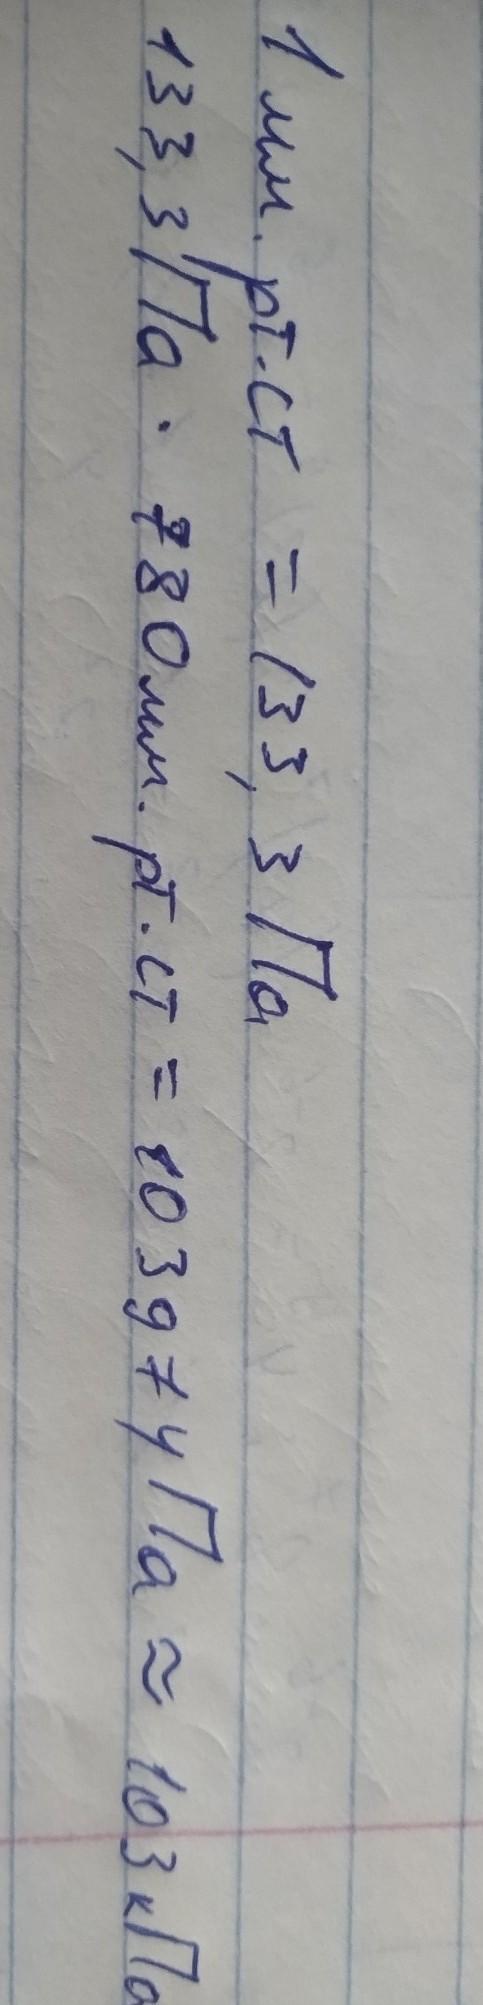 1 мм. рт. ст = 133,3 Па
133,3 Па · 780 мм. рт. ст = 103974 Па ≈ 103 кПа